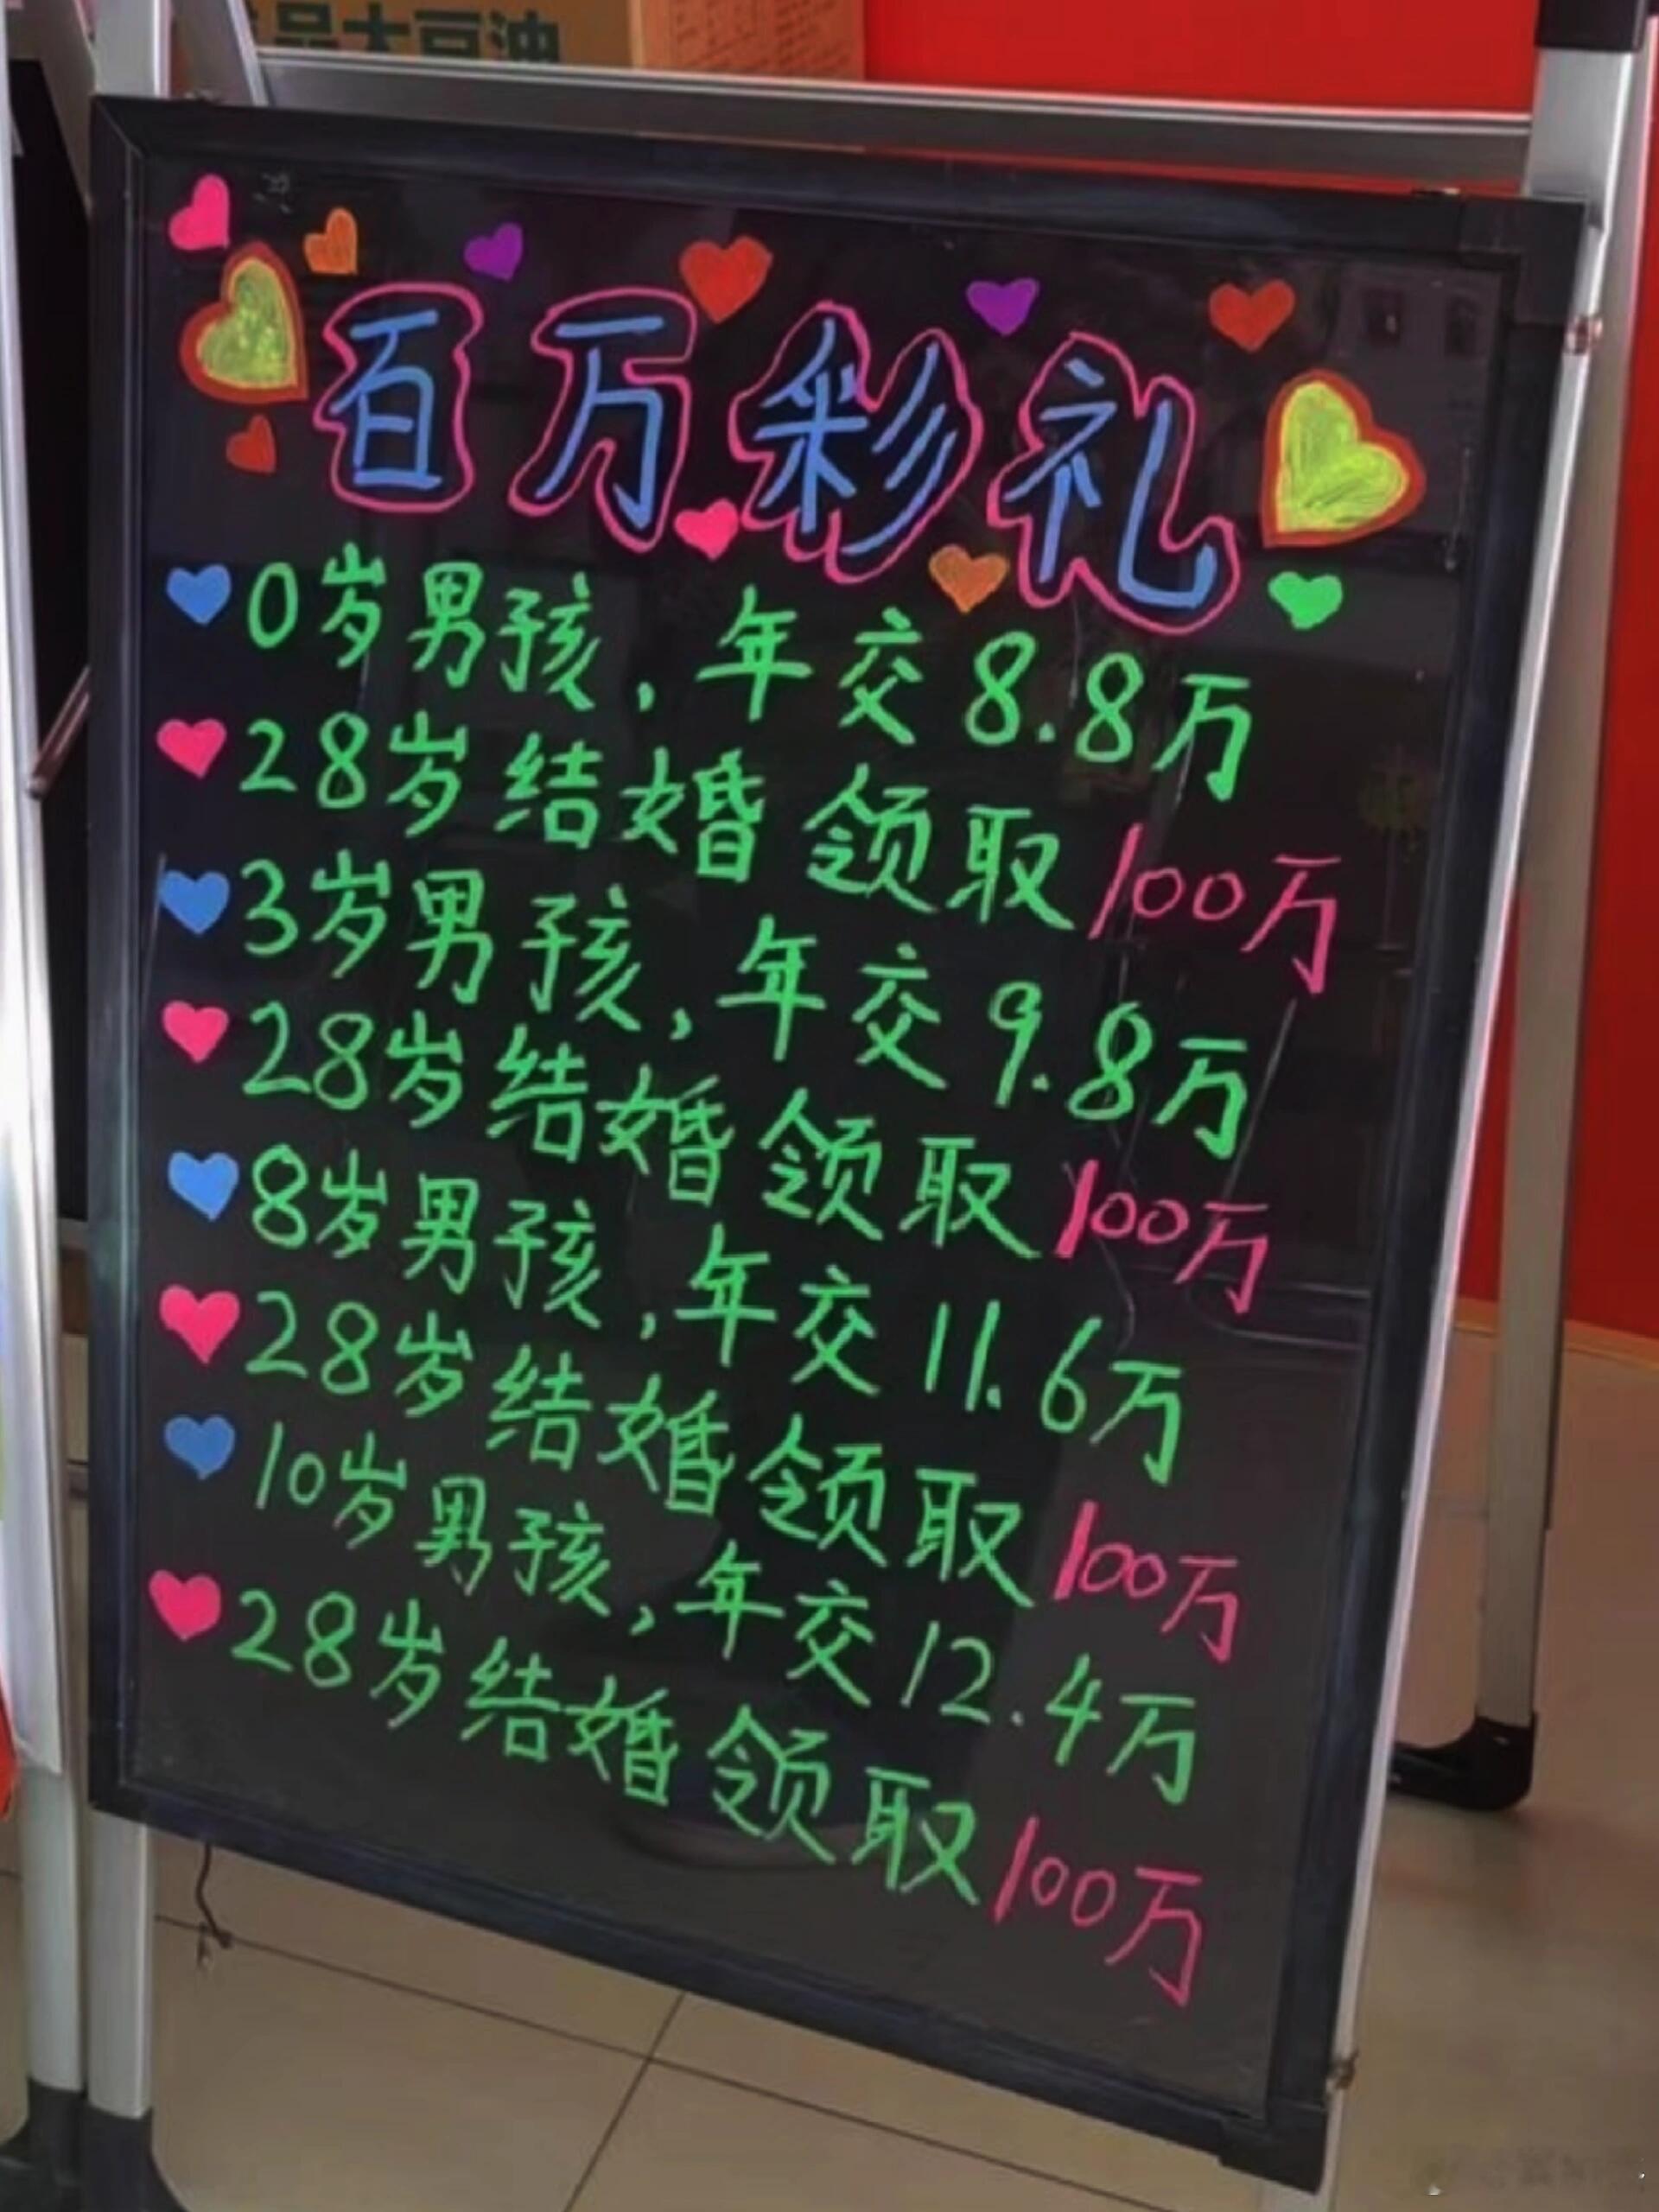 品大豆油
百万彩礼
0岁男孩,年交8.8万
28岁结婚领取100万
3岁男孩,年交9.8万
28岁结婚领取100万
8岁男孩,年交11.6万
28岁结婚领取100万
10岁男孩,年交12.4万
28岁结婚领取100万